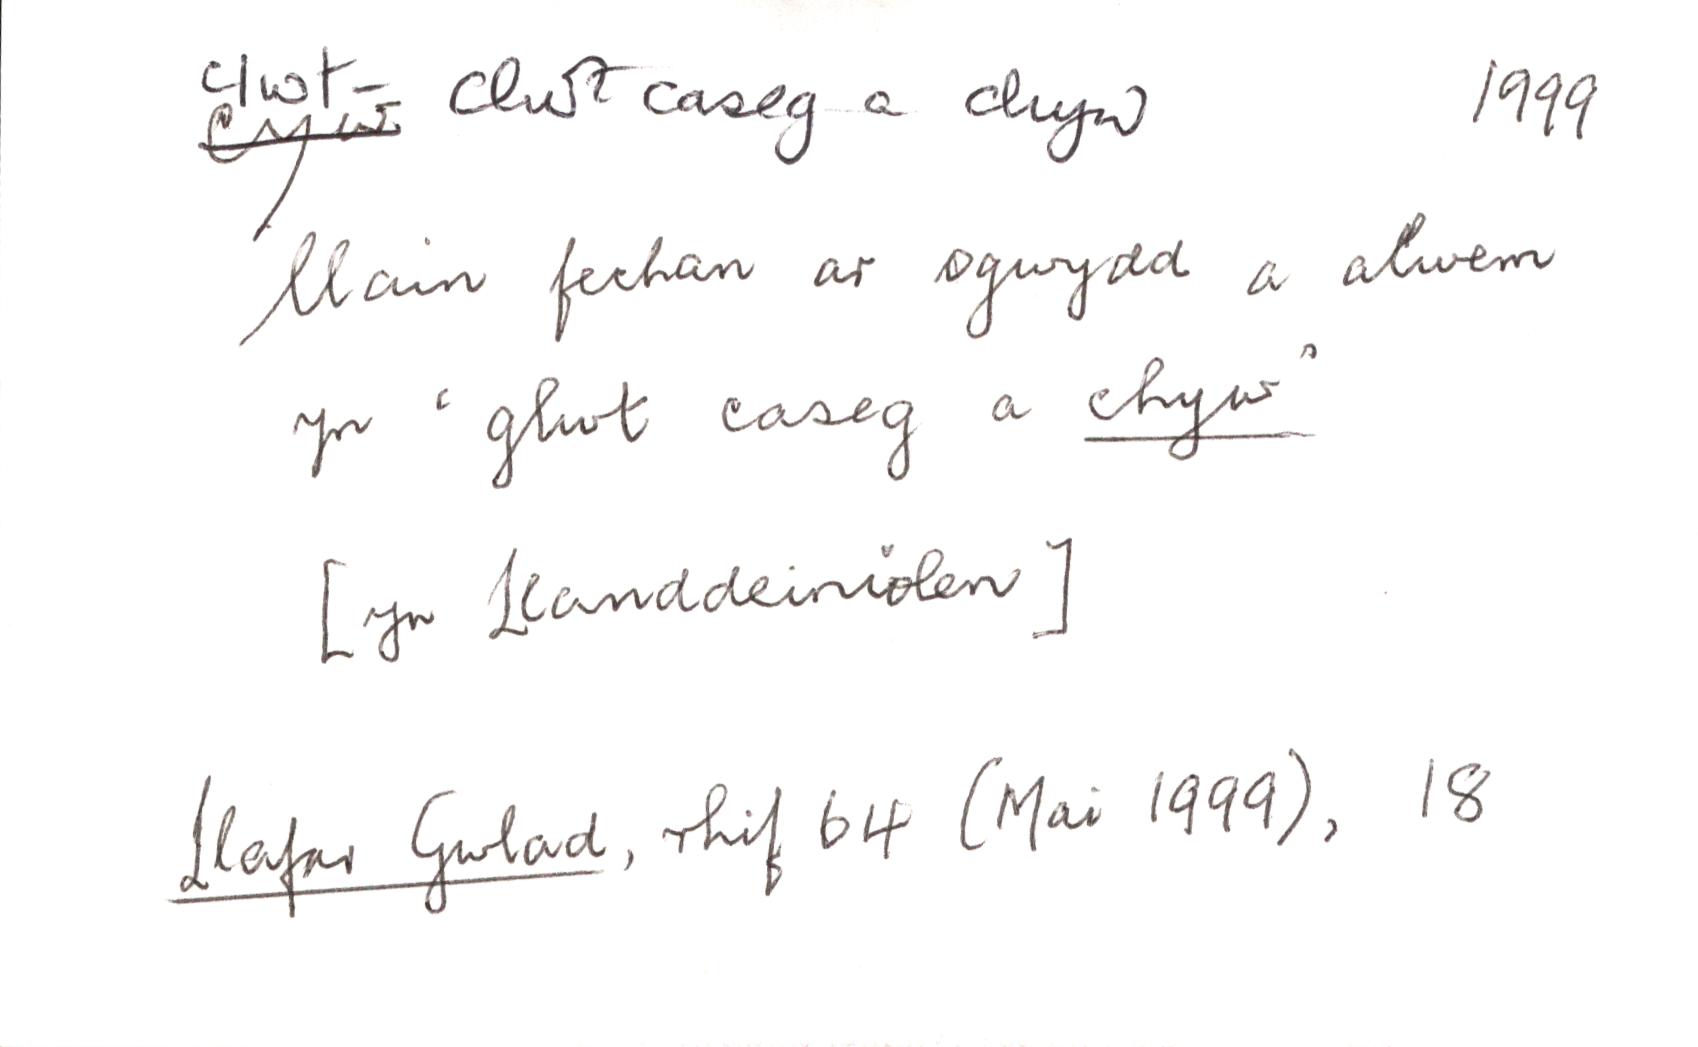 clwt- clwt caseg a chyw 1999
cyw
llain fechan ar ogwydd a alwem
yn ‘glwt caseg a chyw’
[yn Llanddeiniolen]
Llafar Gwlad, rhif 64 (Mai 1999), 18